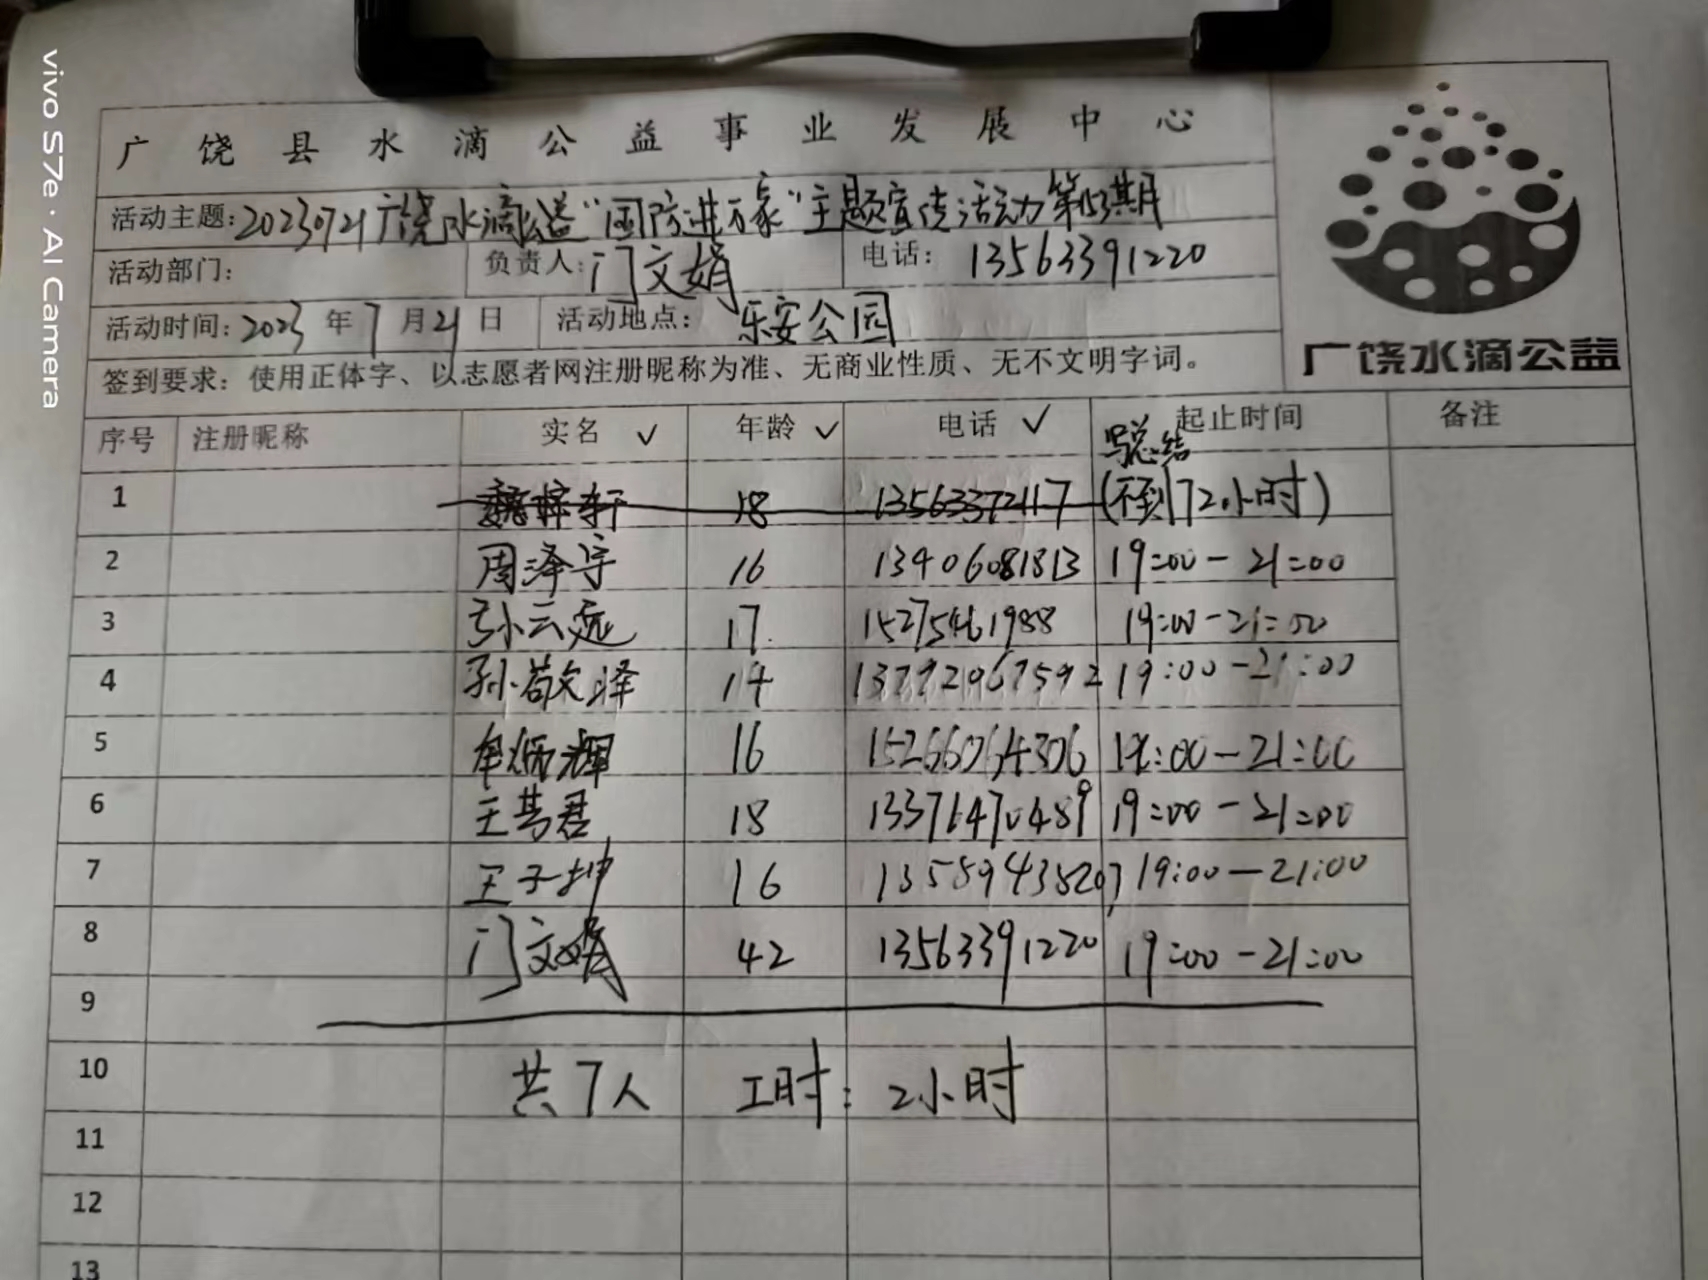 广饶县水滴公益事业发展中心
活动主题:20230721广饶水滴公益“国防进万家”主题宣传活动第153期
活动部门: 负责人:门文娟 电话: 13563391220
活动时间:2023年7月21日 活动地点: 乐安公园
签到要求: 使用正体字、以志愿者网注册昵称为准、无商业性质、无不文明字词。
广饶水滴公益
序号 注册昵称 实名 ✓ 年龄 ✓ 电话 ✓ 起止时间 备注
写总结
1 魏梓轩 18 13563372117 (不到72小时)
2 周泽宇 16 13406081813 19:00-21:00
3 孙云远 17 15275461988 19:00-21:00
4 孙敬泽 14 13792067592 19:00-21:00
5 牟炳辉 16 15266064306 19:00-21:00
6 王君 18 13376470489 19:00-21:00
7 王子坤 16 13589438207 19:00-21:00
8 门文娟 42 13563391220 19:00-21:00
9
10 共7人 工时:2小时
11
12
13
vivo S7e · AI Camera